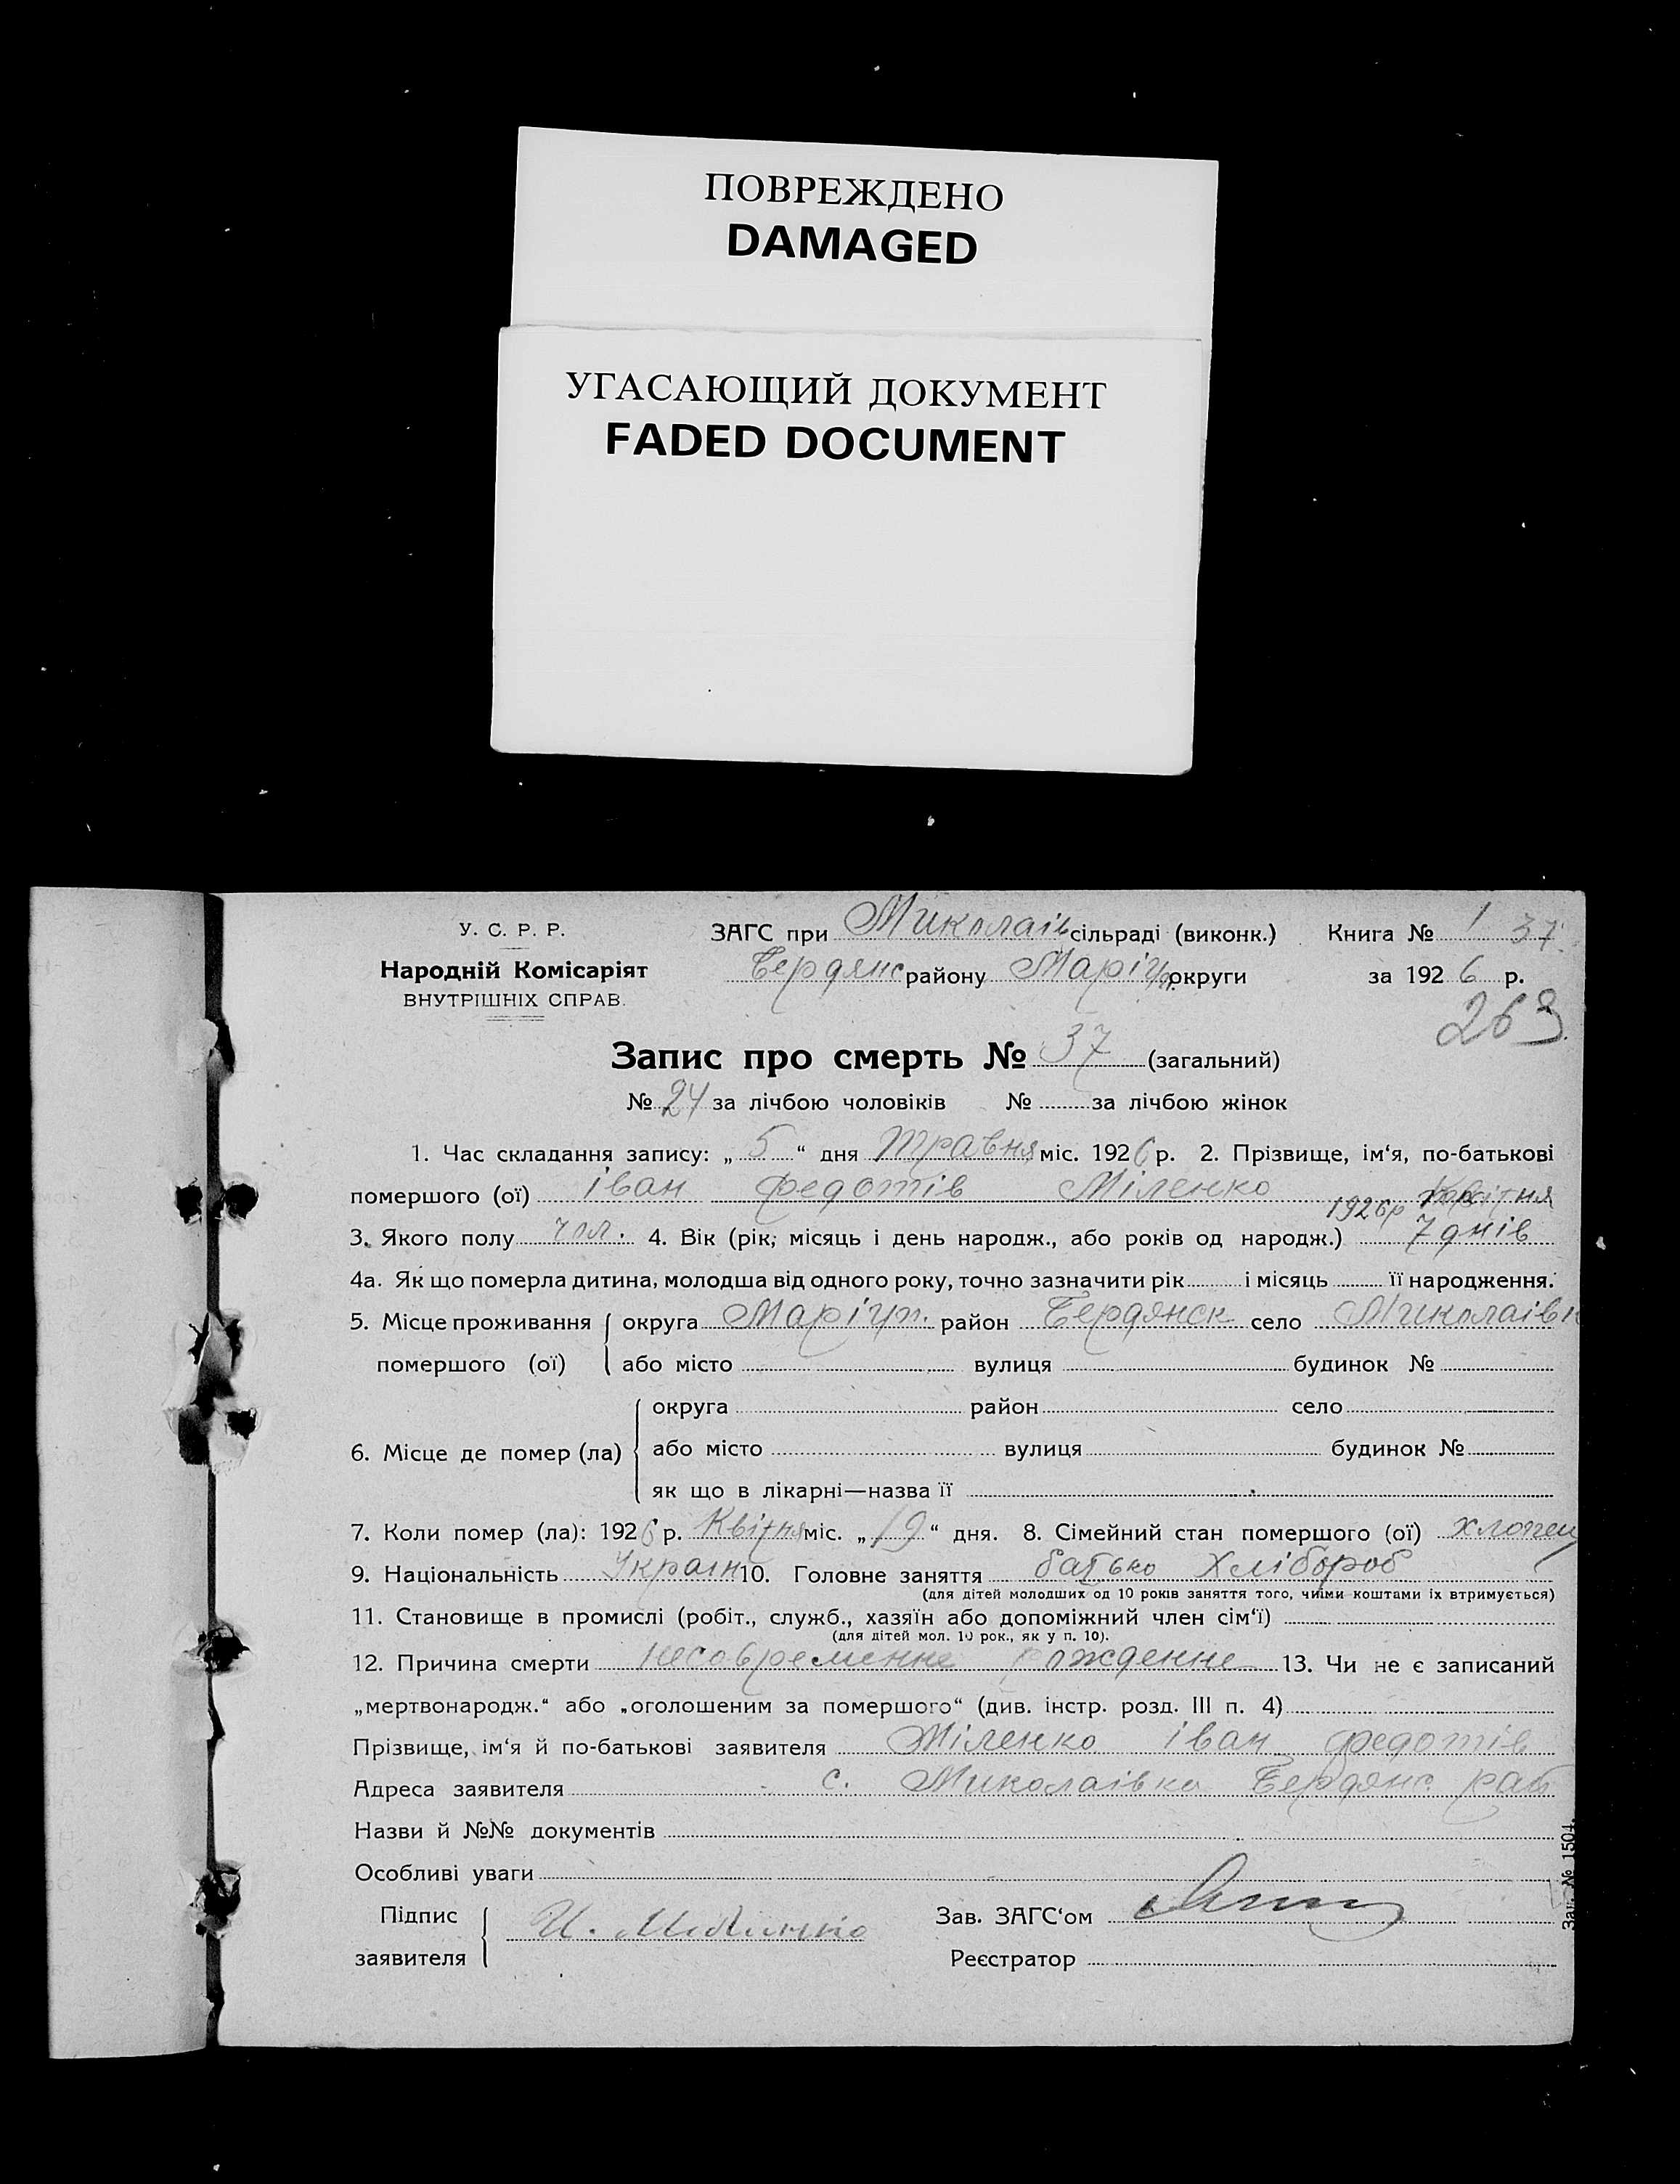 ПОВРЕЖДЕНО
DAMAGED
УГАСАЮЩИЙ ДОКУМЕНТ
FADED DOCUMENT
У. С. Р. Р.
Народній Комісаріят
ВНУТРІШНІХ СПРАВ.
ЗАГС при Миколаів сільраді (виконк.) Книга № 1 37
Бердянс району Маріуп. округи за 1926 р.
269
Запис про смерть № 37 (загальний)
№ 24 за лічбою чоловіків № за лічбою жінок
1. Час складання запису: „ 5 “ дня Травня міс. 1926 р. 2. Прізвище, ім‘я, по-батькові
помершого (ої) Іван Федотів Міленко
1926р Квітня
3. Якого полу чол. 4. Вік (рік, місяць і день народж., або років од народж.) 7 днів
4а. Як що померла дитина, молодша від одного року, точно зазначити рік і місяць її народження.
5. Місце проживання округа Маріуп. район Бердянск село Миколаівк
помершого (ої) або місто вулиця будинок №
округа район село
6. Місце де помер (ла) або місто вулиця будинок №
як що в лікарні—назва її
7. Коли помер (ла): 1926 р. Квітня міс. „ 19 “ дня. 8. Сімейний стан помершого (ої) хлопец
9. Національність Украін 10. Головне заняття батько Хлібороб
(для дітей молодших од 10 років заняття того, чиїми коштами їх втримується)
11. Становище в промислі (робіт., служб., хазяїн або допоміжний член сім‘ї)
(для дітей мол. 10 рок., як у п. 10).
12. Причина смерти несовременне рожденне 13. Чи не є записаний
„мертвонародж.“ або „оголошеним за помершого“ (див. інстр. розд. III п. 4)
Прізвище, ім‘я й по-батькові заявителя Міленко Іван Федотів
Адреса заявителя с. Миколаівка Бердянс. рай
Назви й №№ документів
Особливі уваги
Підпис И. Зав. ЗАГС‘ом
заявителя Реєстратор
Зам. № 1504.